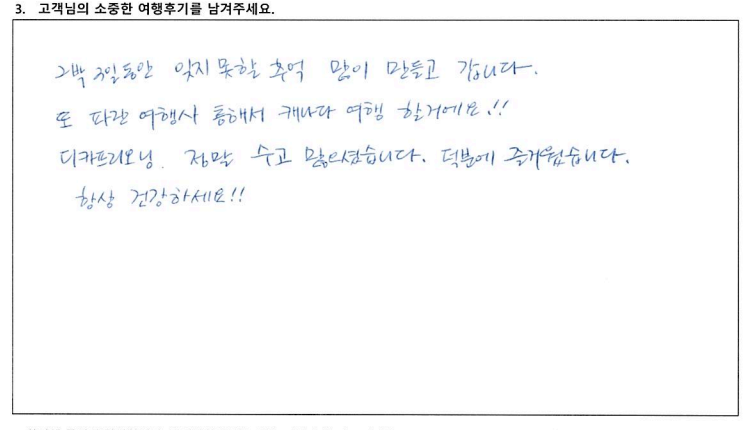 3. 고객님의 소중한 여행후기를 남겨주세요.
2박 3일동안 잊지 못할 추억 많이 만들고 갑니다.
또 파란 여행사 통해서 캐나다 여행 할거에요.!!
디카프리오닝. 정말 수고 많으셨습니다. 덕분에 즐거웠습니다.
항상 건강하세요!!